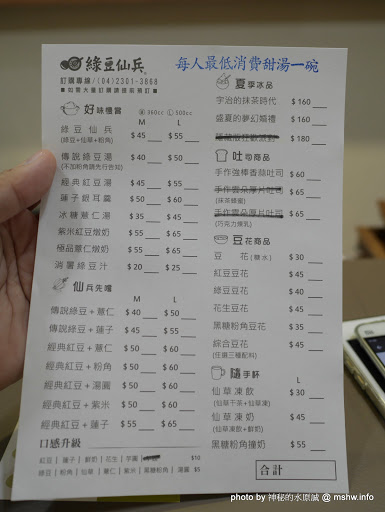 綠豆仙兵
每人最低消費甜湯一碗
訂購專線/(04)2301-3868
■如需大量訂購請提前預訂■
好味檔嘗 M 360cc L 500cc
M L
綠豆仙兵 $45 $55
(綠豆+仙草+粉角)
傳說綠豆湯 $40 $50
(不加粉角請先行告知)
經典紅豆湯 $45 $55
蓮子銀耳露 $50 $60
冰糖薏仁湯 $35 $45
紫米紅豆燉奶 $55 $65
極品薏仁燉奶 $55 $65
消暑綠豆汁 $20 $25
仙兵先嚐 M L
傳說綠豆+薏仁 $40 $50
傳說綠豆+蓮子 $45 $55
經典紅豆+薏仁 $50 $60
經典紅豆+粉角 $50 $60
經典紅豆+湯圓 $50 $60
經典紅豆+紫米 $50 $60
經典紅豆+蓮子 $55 $65
口感升級
紅豆 | 蓮子 | 鮮奶 | 花生 | 芋圓 | $10
綠豆 | 粉角 | 仙草 | 薏仁 | 紫米 | 黑糖粉角 | 湯圓 $5
夏季冰品
宇治的抹茶時代 $160
盛夏的夢幻婚禮 $160
$180
吐司商品
手作強棒香蒜吐司 $60
手作雲朵厚片吐司 $65
(抹茶蜂蜜)
手作雲朵厚片吐司 $65
(巧克力煉乳)
豆花商品
豆花(糖水) $30
紅豆豆花 $45
綠豆豆花 $40
花生豆花 $45
黑糖粉角豆花 $35
綜合豆花 $45
(任選三種配料)
隨手杯
L
仙草凍飲 $30
(仙草干茶+仙草凍)
仙草凍奶 $45
(仙草凍飲+鮮奶)
黑糖粉角撞奶 $55
合計
photo by 神秘的水原誠 @ mshw.info